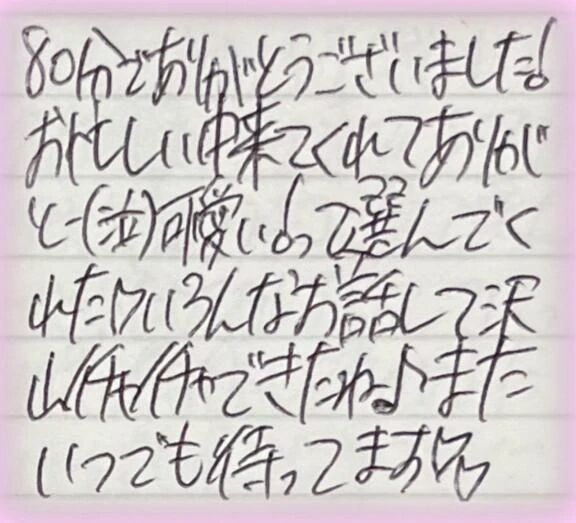 80分でありがとうございました!
お忙しい中来てくれてありが
と-(泣)可愛い!って選んでく
れたり、いろんなお話して沢
山イチャイチャできたね♪また
いつでも待ってます♡